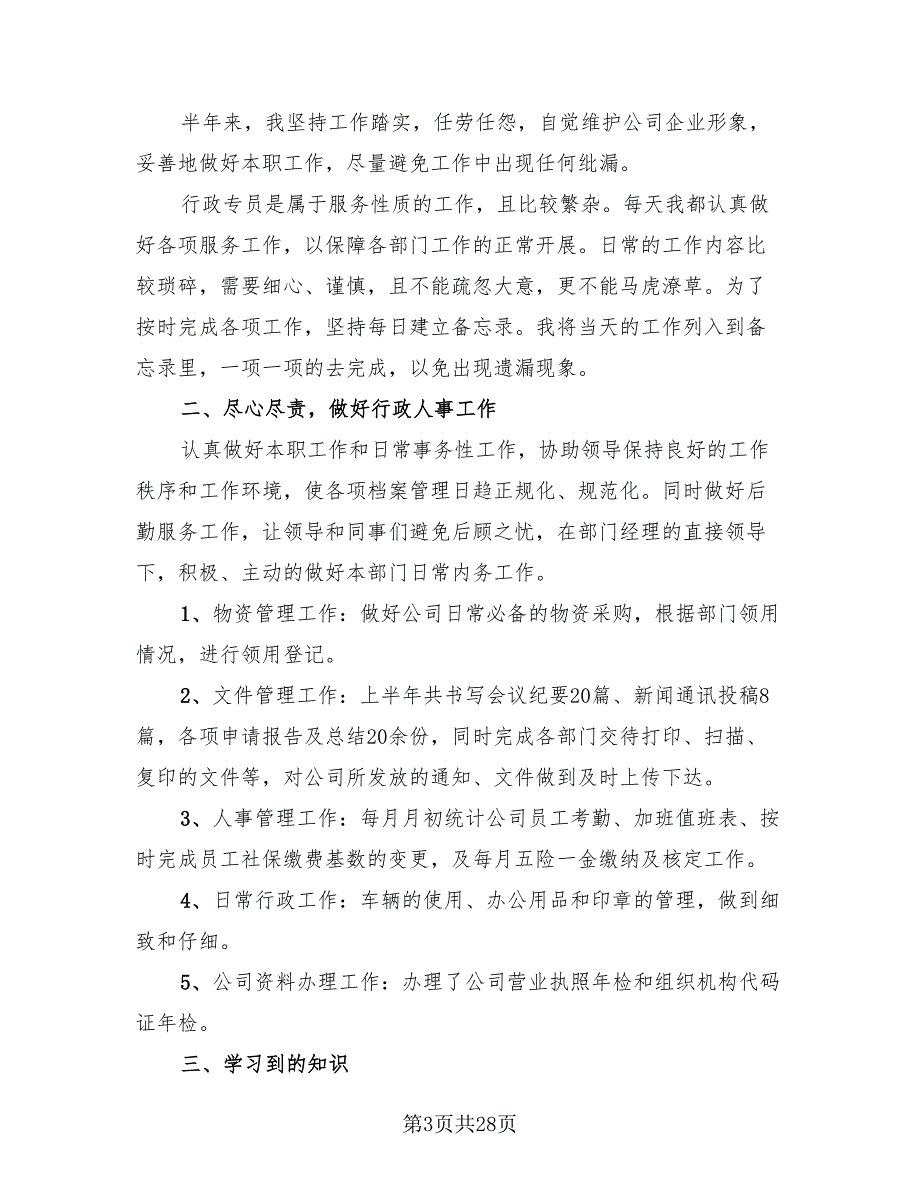 半年来，我坚持工作踏实，任劳任怨，自觉维护公司企业形象，
妥善地做好本职工作，尽量避免工作中出现任何纰漏。
行政专员是属于服务性质的工作，且比较繁杂。每天我都认真做
好各项服务工作，以保障各部门工作的正常开展。日常的工作内容比
较琐碎，需要细心、谨慎，且不能疏忽大意，更不能马虎潦草。为了
按时完成各项工作，坚持每日建立备忘录。我将当天的工作列入到备
忘录里，一项一项的去完成，以免出现遗漏现象。
二、尽心尽责，做好行政人事工作
认真做好本职工作和日常事务性工作，协助领导保持良好的工作
秩序和工作环境，使各项档案管理日趋正规化、规范化。同时做好后
勤服务工作，让领导和同事们避免后顾之忧，在部门经理的直接领导
下，积极、主动的做好本部门日常内务工作。
1、物资管理工作：做好公司日常必备的物资采购，根据部门领用
情况，进行领用登记。
2、文件管理工作：上半年共书写会议纪要20篇、新闻通讯投稿8
篇，各项申请报告及总结20余份，同时完成各部门交待打印、扫描、
复印的文件等，对公司所发放的通知、文件做到及时上传下达。
3、人事管理工作：每月月初统计公司员工考勤、加班值班表、按
时完成员工社保缴费基数的变更，及每月五险一金缴纳及核定工作。
4、日常行政工作：车辆的使用、办公用品和印章的管理，做到细
致和仔细。
5、公司资料办理工作：办理了公司营业执照年检和组织机构代码
证年检。
三、学习到的知识
第3页共28页